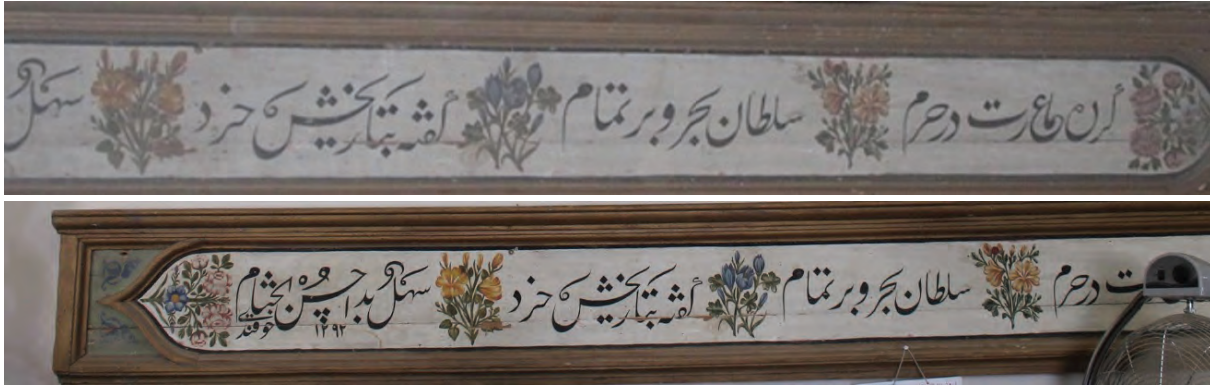 عمارت در حرم سلطان بحر و بر تمام گفته بتاریخش خرد سهل
در حرم سلطان بحر و بر تمام گفته بتاریخش خرد سهل بدا حسن الختام
۱۲۹۲ خوقند